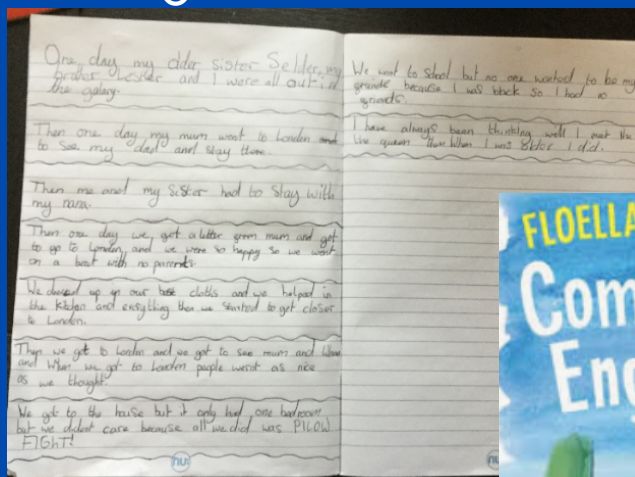 One day my older sister Selder, my
brater, Lester and I were all out in
the galary.
Then one day my mum went to London
to See my dad and stay there.
Then me and my Sister had to Stay with
my nana.
Then one day we got a letter from mum and got
to go to London, and we were so happy so we went
on a boat with no parents.
We dressed up in our best cloths and we helped in
the kitchen and everything then we started to get closer
to London.
Then we got to London and we got to see mum and
and When we got to London people wernt as nice
as we thought.
We got to the house but it only had one bedroom
but we didnt care because all we did was PILOW
FIGHT!
nu:
We went to Scool but no one wanted to be my
friends because I was black so I had no
friends.
I have always been thinking well I met the
the queen then When I was older I did.
FLOELLA
Com
Eng